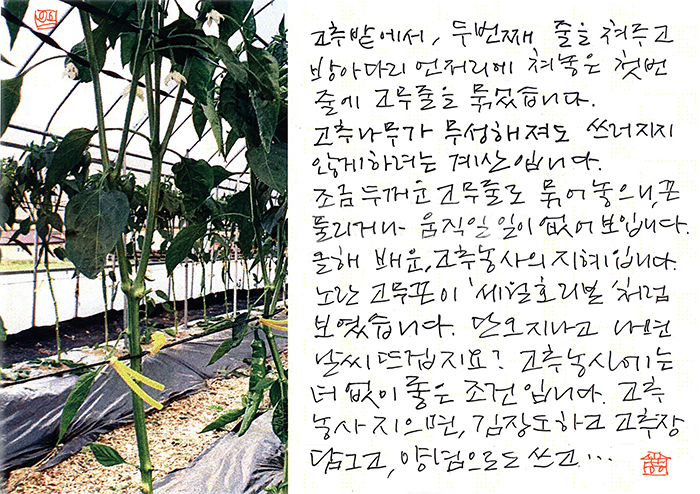 고추밭에서, 두번째 줄을 쳐주고
방아다리 언저리에 쳐놓은 첫번
줄에 고무줄을 묶었습니다.
고추나무가 무성해져도 쓰러지지
않게하려는 계산입니다.
조금 두꺼운 고무줄로 묶어 놓으니, 끈
풀리거나 움직일 일이 없어 보입니다.
올해 배운, 고추농사의 지혜입니다.
노란 고무끈이 '세월호리본' 처럼
보였습니다. 단오지나고 나면
날씨 뜨겁지요? 고추농사에는
더 없이 좋은 조건입니다. 고추
농사 지으면, 김장도하고 고추장
담그고, 양념으로도 쓰고...